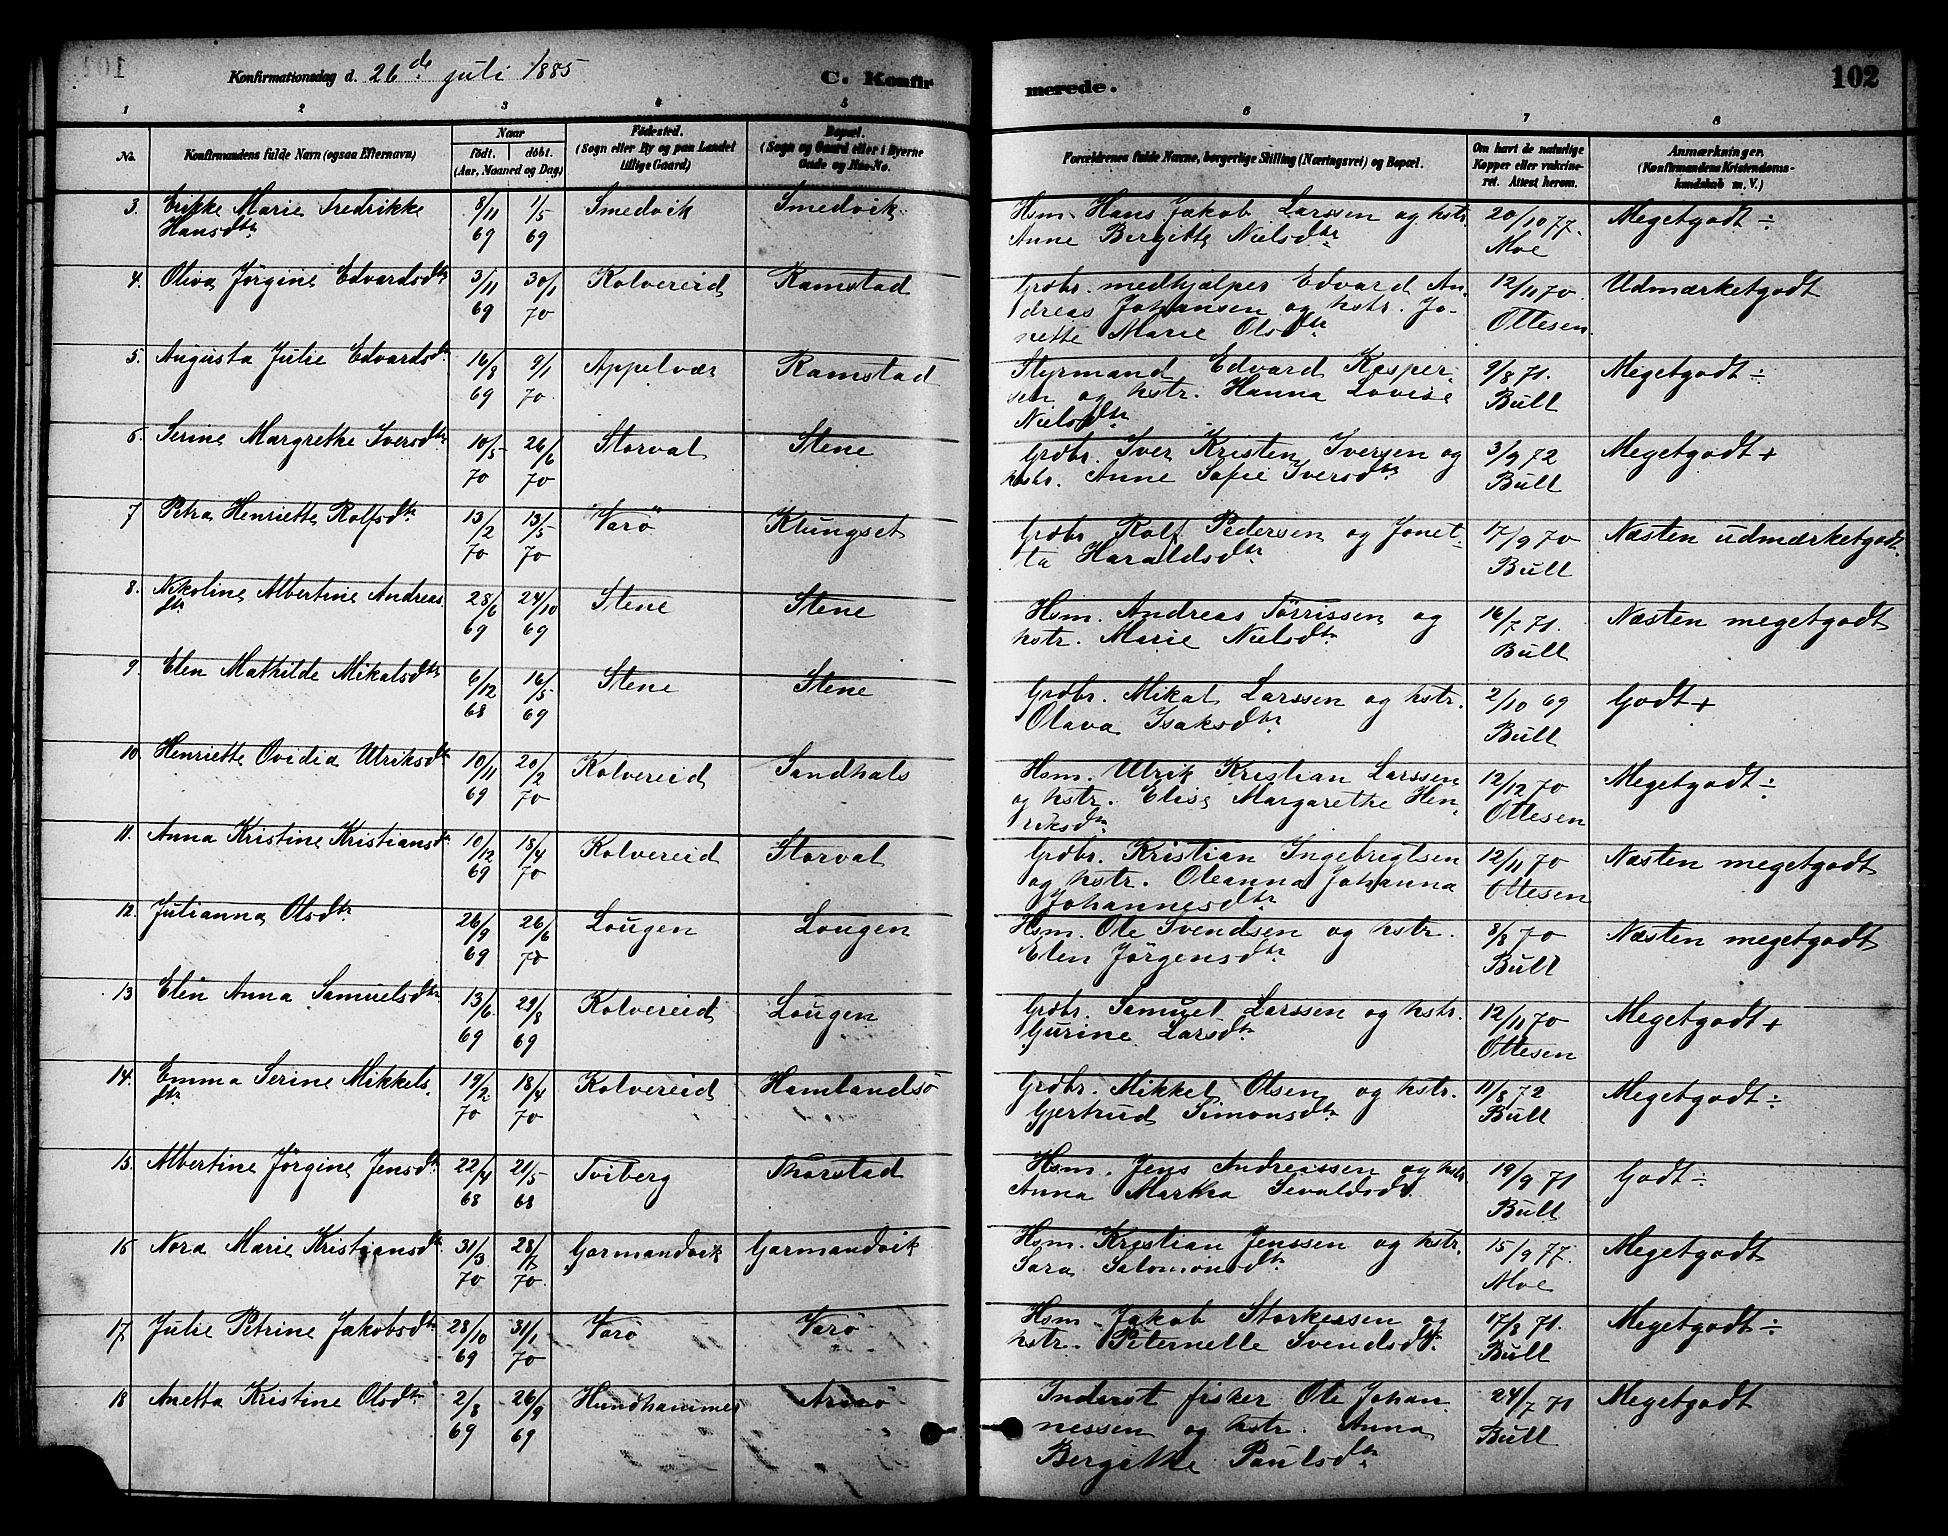 Konfirmationsdag d. 26de juli 1885
C. Konfirmerede.
102
1 2 3 4 5 6 7 8
No. | Konfirmandens fulde Navn (ogsaa Efternavn) | Naar født. døbt. (Aar, Maaned og Dag) | Fødested. (Sogn eller By og paa Landet tillige Gaard) | Bopæl. (Sogn og Gaard eller i Byerne Gade og Hus-No. | Forældrenes fulde Navne, borgerlige Stilling (Næringsvei) og Bopæl. | Om havt de naturlige Kopper eller vaksineret. Attest herom. | Anmærkninger, (Konfirmandens Kristendomskundskab m. V.)
3. Marie Fredrikke Hansdtr | 8/11 69 | 1/5 69 | Smedvik | Smedvik | Hsm. Hans Jakob Larssen og hstr. Anne Bergitte Nielsdtr | 20/10 77. Moe | Megetgodt ÷
4. Oliva Jørgine Edvardsdtr | 3/11 69 | 30/1 70 | Kolvereid | Ramstad | Grdbr. medhjælper Edvard Andreas Johansen og hstr. Jonette Marie Olsdtr | 12/11 70. Ottesen. | Udmærketgodt
5. Augusta Julie Edvardsdtr | 16/8 69 | 9/1 70. | Appelvær | Ramstad | Styrmand Edvard Kaspersen og hstr. Hanna Lovise Nielsdtr | 9/8 71. Bull | Megetgodt ÷
6. Serine Margrethe Iversdtr | 10/5 70 | 26/6 70 | Storval | Stene | Grdbr. Iver Kristen Iversen og hstr. Anne Sofie Iversdtr | 3/9 72 Bull | Megetgodt +
7 Petra Henriette Rolfsdtr | 13/2 70 | 13/5 70 | Varö | Klungset | Grdbr. Rolf Pedersen og Jonetta Haraldsdtr | 17/9 70 Bull | Næsten udmærketgodt
8. Nikoline Albertine Andreasdtr | 28/6 69 | 24/10 69 | Stene | Stene | Hsm. Andreas Tørrissen og hstr. Marie Nielsdtr | 16/7 71. Bull | Næsten megetgodt
9. Elen Mathilde Mikalsdtr | 6/12 68 | 16/5 69 | Stene | Stene | Grdbr. Mikal Larssen og hstr. Olava Isaksdtr | 2/10 69 Bull | Godt +
10. Henriette Ovidia Ulriksdtr | 10/11 69 | 20/2 70 | Kolvereid | Sandhals | Hsm. Ulrik Kristian Larssen og hstr. Elise Margarethe Henriksdtr | 12/12 70 Ottesen | Megetgodt ÷
11. Anna Kristine Kristiansdtr | 10/12 69 | 18/4 70. | Kolvereid | Storval | Grdbr. Kristian Ingebregtsen og hstr. Oleanna Johanna Johannesdtr | 12/11 70 Ottesen | Næsten megetgodt
12. Julianna Olsdtr | 26/9 69 | 26/6 70 | Lougen | Lougen | Hsm. Ole Svendsen og hstr. Elen Jørgensdtr | 8/8 70 Bull | Næsten megetgodt
13 Elen Anna Samuelsdtr | 13/6. 69 | 29/8 69 | Kolvereid | Lougen | Grdbr. Samuel Larssen og hstr. Gurine Larsdtr | 12/11 70 Ottesen | Megetgodt +
14. Emma Serine Mikkelsdtr | 19/2 70 | 18/4 70 | Kolvereid | Hamlandsö | Grdbr. Mikkel Olsen og hstr. Gjertrud Simonsdtr | 11/8 72 Bull | Megetgodt ÷
15. Albertine Jørgine Jensdtr | 22/4 68 | 21/5 68 | Tviberg | Thorstad | Hsm. Jens Andreassen og hstr Anna Martha Sevaldsdt. | 19/9 71 Bull | Godt ÷
16 Nora Marie Kristiansdtr | 31/3 70 | 28/7 70. | Garmandvik | Garmandvik | Hsm. Kristian Jenssen og hstr. Sara Salomonsdtr | 15/9 77. Moe | Megetgodt
17 Julie Petrine Jakobsdtr | 28/10 69 | 31/1 70 | Varö | Varö | Hsm Jakob Storkersen og hstr. Peternelle Svendsdtr | 17/8 71. Bull | Megetgodt ÷
18 Anetta Kristine Olsdtr | 2/8 69 | 26/9 69 | Hundhammer | Arnö | Inderst fisker Ole Johannessen og hstr. Anna Bergithe Paulsdtr | 24/7 71 Bull | Megetgodt